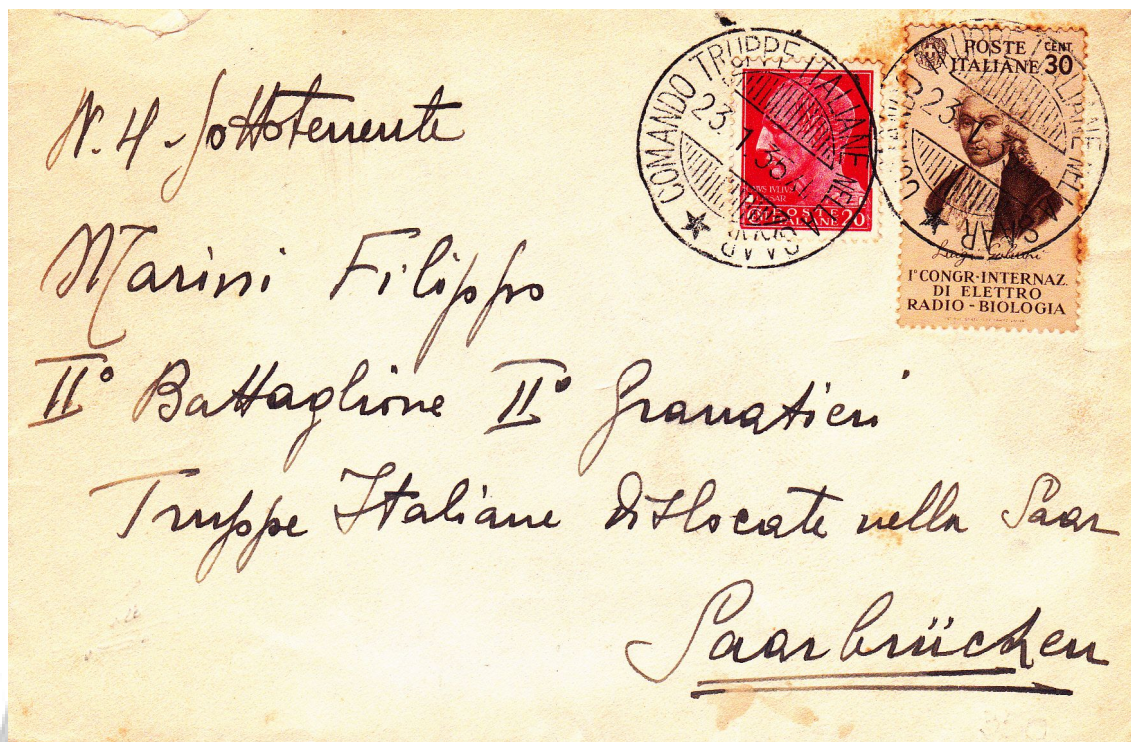 N. 4 - Sottotenente
Marini Filippo
II° Battaglione II° Granatieri
Truppe Italiane dislocate nella Saar
Saarbrücken
COMANDO TRUPPE ITALIANE NELLA SAAR
23.1.35
POSTE ITALIANE 20
POSTE ITALIANE CENT 30
23.1
SAAR
Luigi Galvani
I° CONGR·INTERNAZ.
DI ELETTRO
RADIO - BIOLOGIA